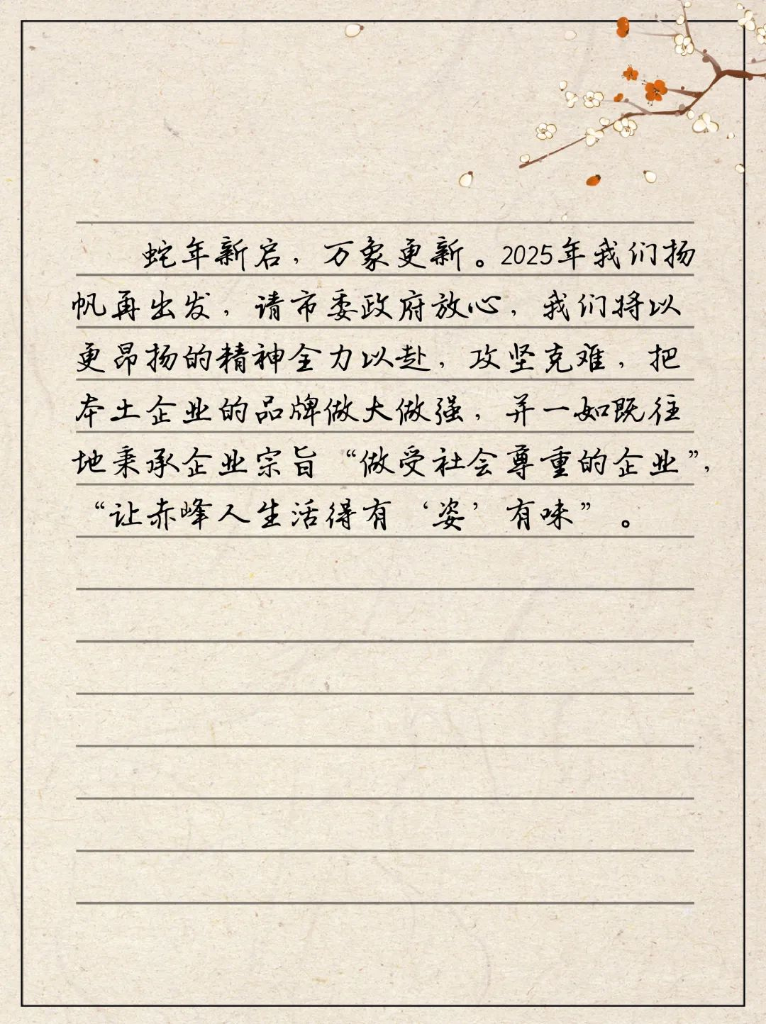 蛇年新启，万象更新。2025年我们扬
帆再出发，请市委政府放心，我们将以
更昂扬的精神全力以赴，攻坚克难，把
本土企业的品牌做大做强，并一如既往
地秉承企业宗旨“做受社会尊重的企业”，
“让赤峰人生活得有‘姿’有味”。